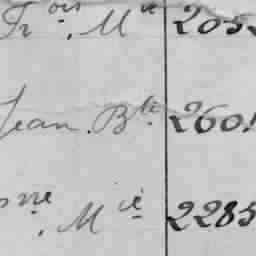 Frois. Mie 205
Jean. Bte 260
rre. Mie 2285